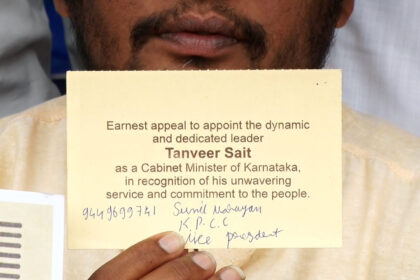 Earnest appeal to appoint the dynamic
and dedicated leader
Tanveer Sait
as a Cabinet Minister of Karnataka,
in recognition of his unwavering
service and commitment to the people.
9449699741 Sunil Narayan
K.P.C.C
Vice president